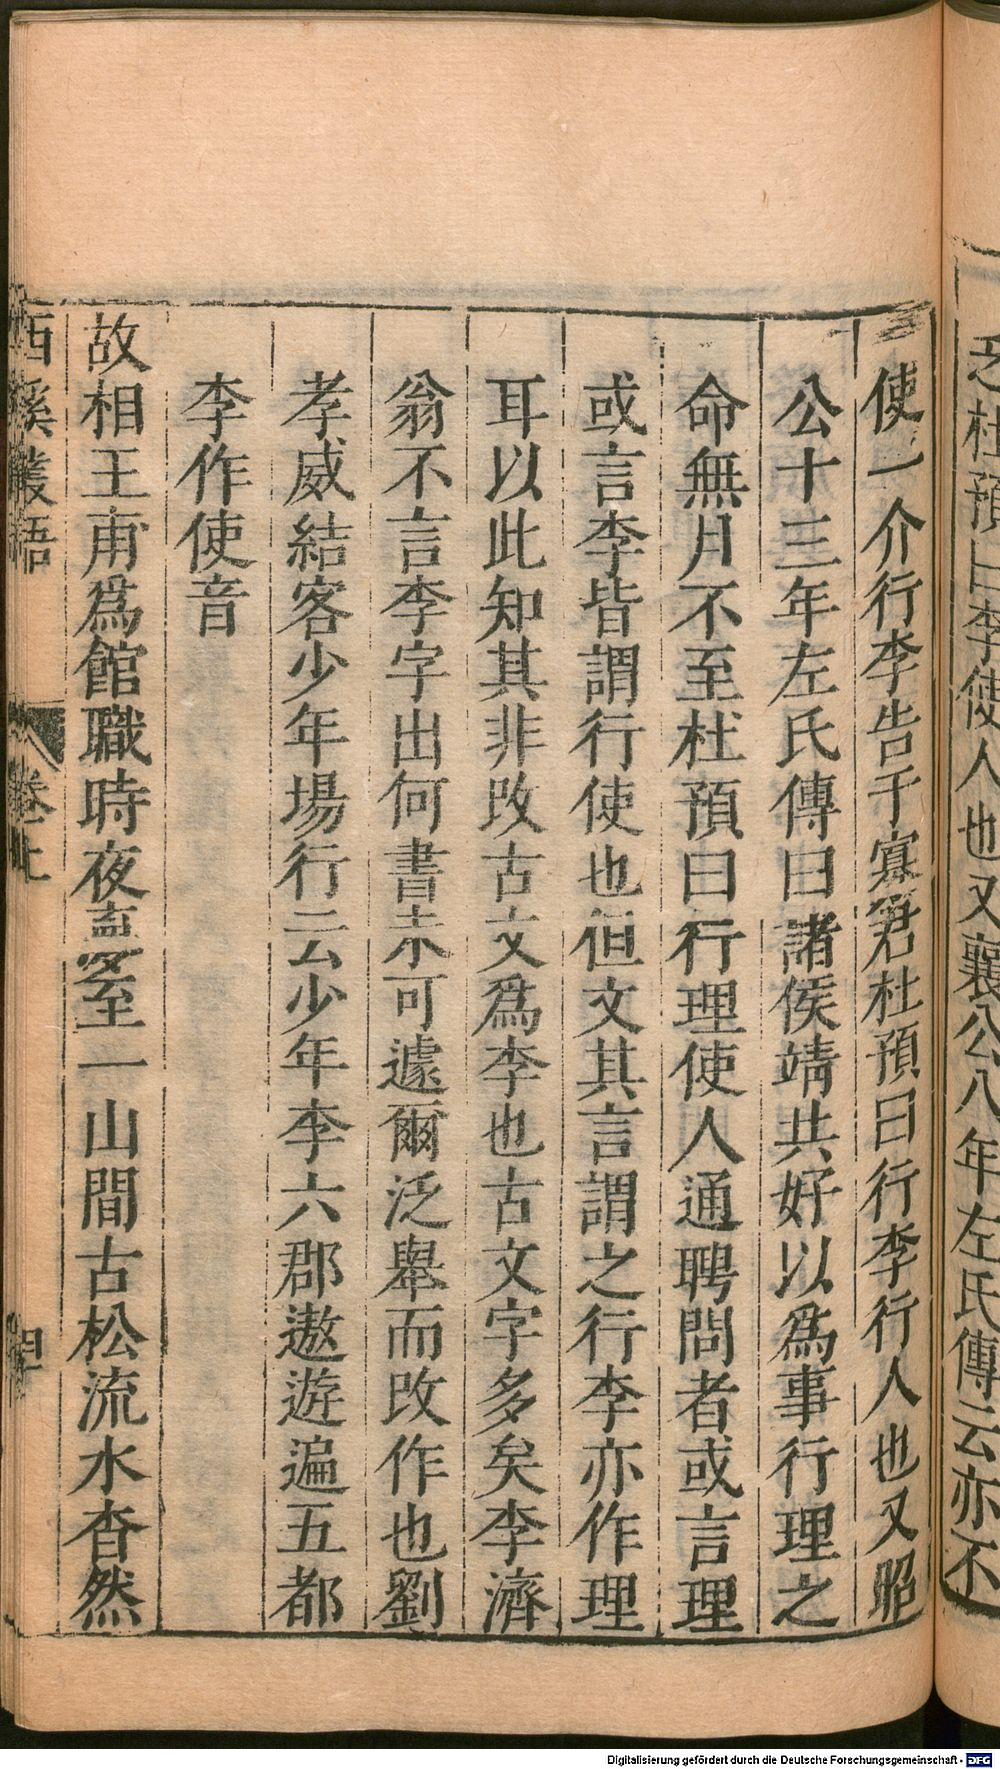 乏杜預曰李使人也又襄公八年左氏傳云亦不
使一介行李告于寡君杜預曰行李行人也又昭
公十三年左氏傳曰諸侯靖共好以為事行理之
命無月不至杜預曰行理使人通聘問者或言理
或言李皆謂行使也但文其言謂之行李亦作理
耳以此知其非改古文為李也古文字多矣李濟
翁不言李字出何書未可遽爾泛舉而改作也劉
孝威結客少年場行云少年李六郡遨遊遍五都
李作使音
故相王甫爲館職時夜夢至一山間古松流水杳然
西溪叢語 卷上
Digitalisierung gefördert durch die Deutsche Forschungsgemeinschaft - DFG